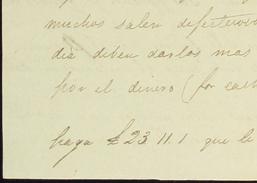 muchos salen defectuosos
día deben darlos mas
por el dinero (for cash
haga £23.11.1 que le